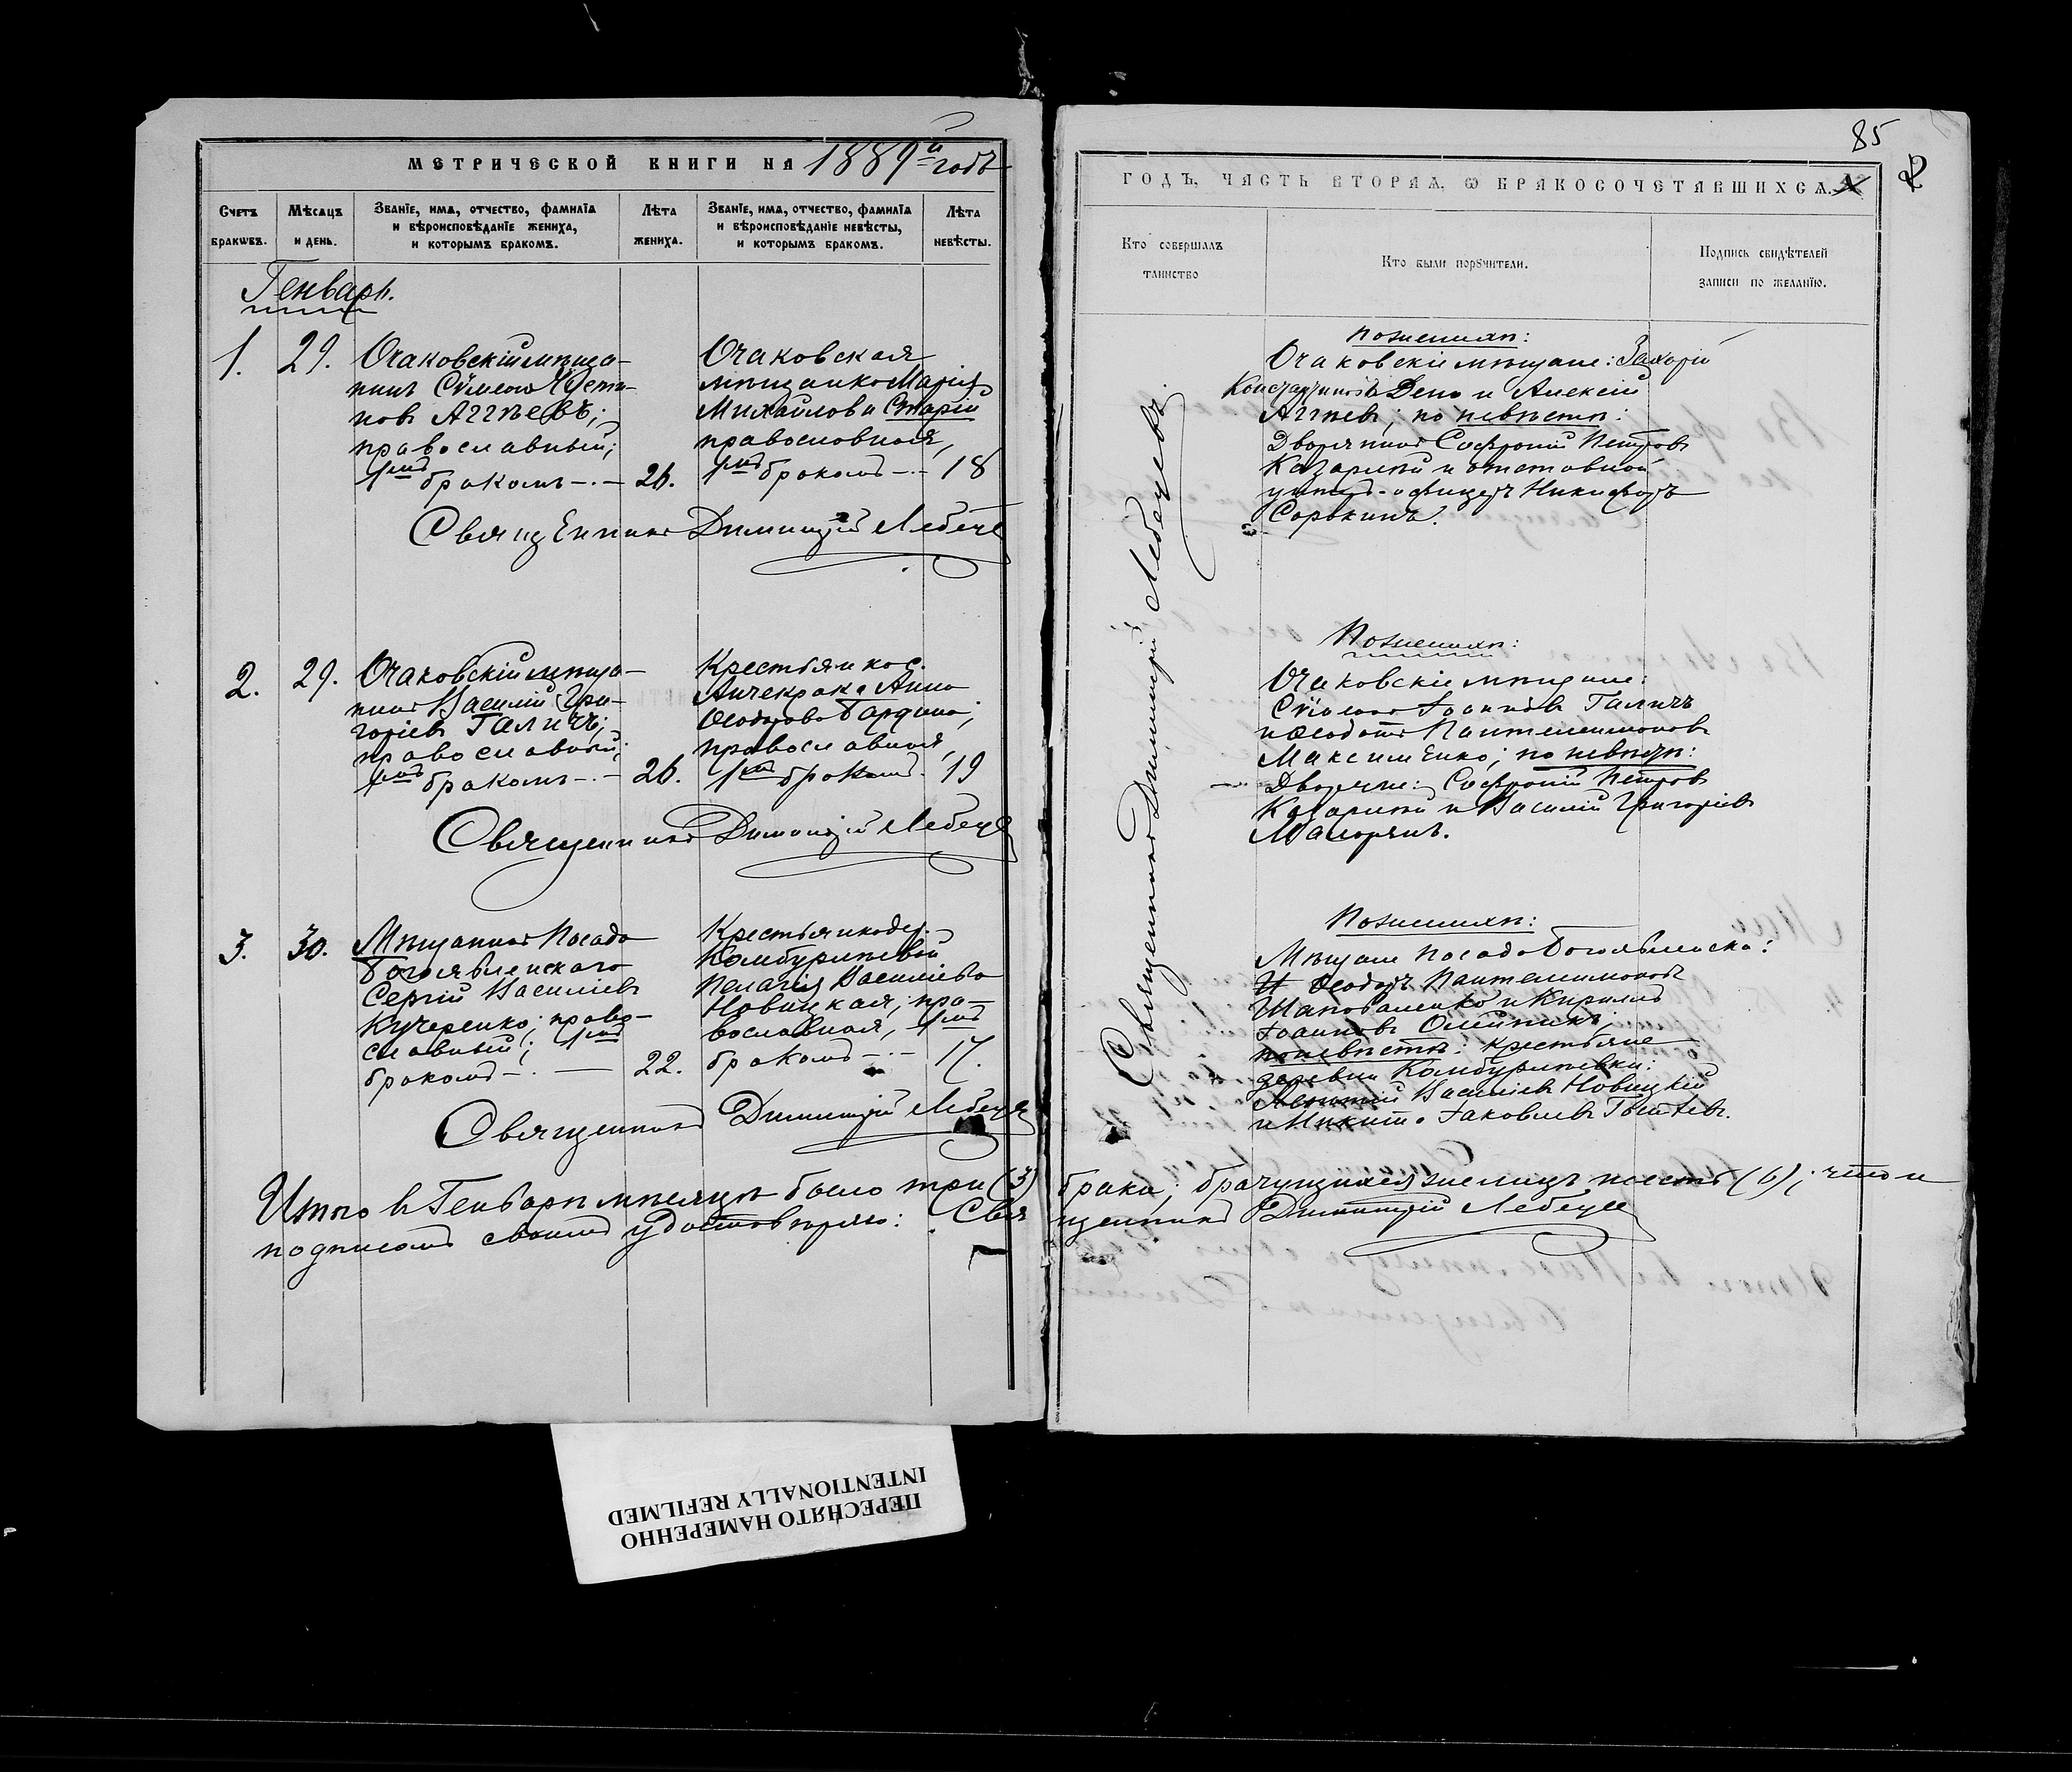 МЕТРИЧЕСКОЙ КНИГИ НА 1889й годъ
Счетъ браковъ.
Мѣсяцъ и день.
Званїе, имя, отчество, фамилїя и вѣроисповѣданїе жениха, и которымъ бракомъ.
Лѣта жениха.
Званїе, имя, отчество, фамилїя и вѣроисповѣданїе невѣсты, и которымъ бракомъ.
Лѣта невѣсты.
Генварь.
1. 29. Очаковскій мѣща-
нинъ Сѵмеонъ
новъ Аггѣевъ;
православный;
1мъ бракомъ —.— 26.
Очаковская
мѣщанка Марія
Михайлова Старій
православная,
1мъ бракомъ —.— 18
Священникъ Димитрій Лебеде
2. 29. Очаковскій мѣща-
нинъ Василій Гри-
горіевъ Галичъ;
православный;
1мъ бракомъ —.— 26.
Крестьянка с.
Анчекрака Анна
Ѳеодорова
православная,
1мъ бракомъ. 19
Священникъ Димитрій Лебедев
3. 30. Мѣщанинъ Посада
Богоявленскаго
Сергій Василіевъ
Кучеренко; право-
славный; 1мъ
бракомъ —. — 22.
Крестьянка дер.
Камбуриневой
Пелагія Василіева
Новицкая; пра-
вославная, 1мъ
бракомъ —.— 17.
Священникъ Димитрій Лебедев
Итого въ Генварѣ мѣсяцѣ было три (3)
подписомъ своимъ удостовѣряю: Свя
85
2
ГОДЪ, ЧАСТЬ ВТОРАЯ, Ѡ БРАКОСОЧЕТАВШИХСЯ.
Кто совершалъ таинство
Кто были порꙋчители.
Подпись свидѣтелей записи по желанїю.
Священникъ Димитрій Лебедевъ.
По женихѣ:
Очаковскіе мѣщане: Захарій
Константиновъ Дена и Алексій
Аггѣевъ; по невѣстѣ:
Дворянинъ Софроній Петровъ
Казарскій и отставной
унтеръ-офицеръ Никифоръ
Сорокинъ.
По женихѣ:
Очаковскіе мѣщане:
Сѵмеонъ Іоанновъ Галичъ
и Ѳеодотъ Пантелеимоновъ
Максименко; по невѣстѣ:
Дворяне: Софроній Петровъ
Казарскій и Василій Григоріевъ
По женихѣ:
Мѣщане посада Богоявленска:
Ѳеодоръ Пантелимоновъ
Шаповаленко и Кириллъ
Іоанновъ Олейникъ;
по невѣстѣ: крестьяне
деревни Камбуриневки:
Василіевъ Новицкій
и Никита Іаковлевъ
брака; брачущихся же лицъ шесть (6); что и
щенникъ Димитрій Лебедев
ПЕРЕСНЯТО НАМЕРЕННО
INTENTIONALLY REFILMED